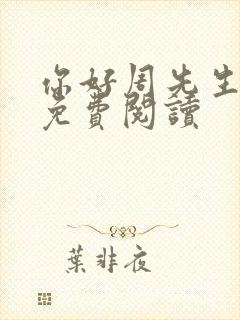 你好周先生
免費閱讀
葉非夜